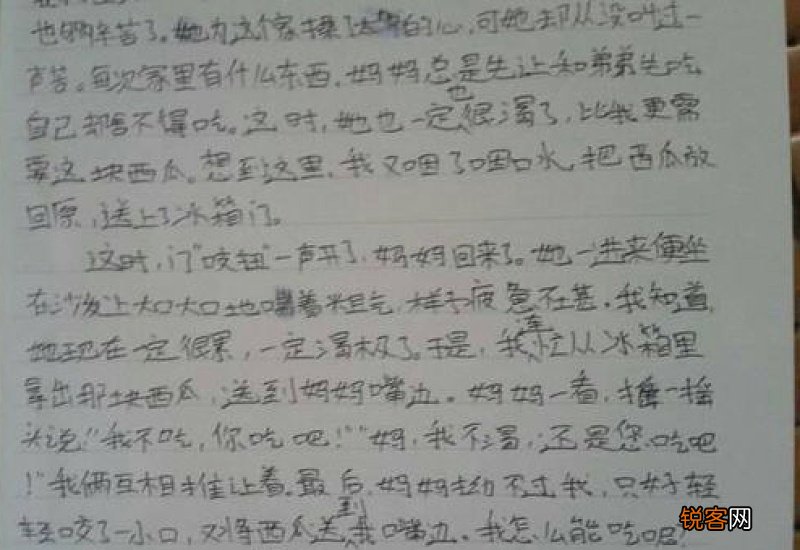 也够辛苦了。她为这个家操了太多的心,可她却从没叫过一
声苦。每次家里有什么东西,妈妈总是先让和弟弟先吃
自己却舍不得吃。这时,她也一定也很渴了,比我更需
要这块西瓜。想到这里,我又咽了咽口水,把西瓜放
回原,送上了冰箱门。
这时,门"咬钮"一声开了,妈妈回来了。她一进来便坐
在沙发上大口大口地喘着粗气,样子疲惫不甚。我知道,
她现在一定很累,一定渴极了。于是,我连忙从冰箱里
拿出那块西瓜,送到妈妈嘴边。妈妈一看,摇一摇
头说!"我不吃,你吃吧!""妈,我不渴,还是您吃吧
!"我俩互相推让着。最后,妈妈拗不过我,只好轻
轻咬了一小口,又将西瓜送到我嘴边。我怎么能吃呢?
锐客网